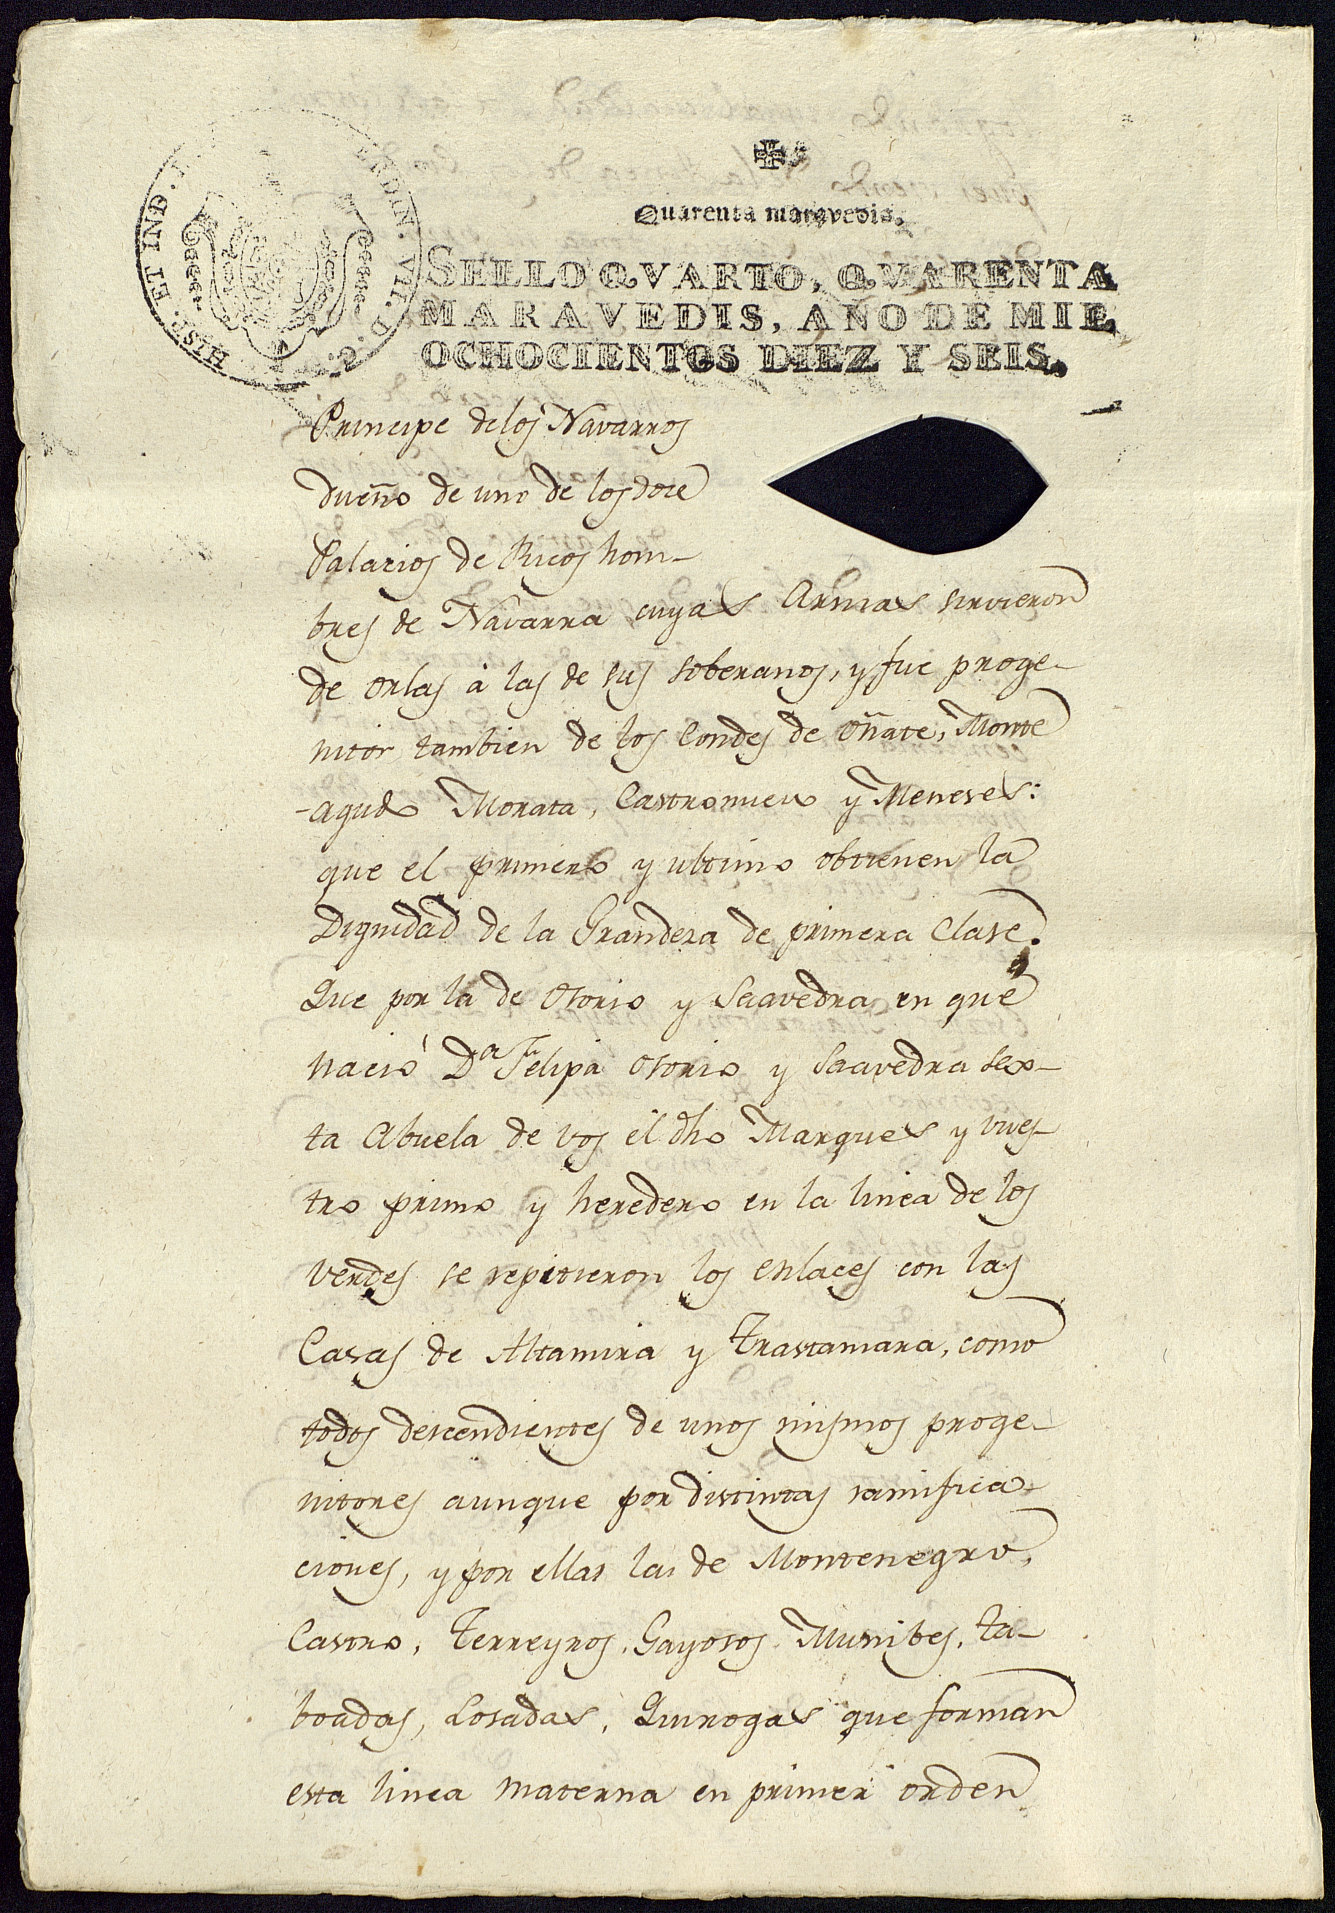 HISP. ET IND. R.
FERDIN. VII. D. G.
Quarenta maravedis.
SELLO QVARTO, QVARENTA
MARAVEDIS, AÑO DE MIL
OCHOCIENTOS DIEZ Y SEIS.
Principe de los Navarros
dueño de uno de los doce
Palacios de Ricos hom-
bres de Navarra cuyas Armas sirvieron
de orlas à las de sus soberanos, y fue proge-
nitor tambien de los Condes de Oñate, Monte
-agudo Morata, Castronuevo y Meneses:
que el primero y ultimo obtienen la
Dignidad de la Grandeza de primera Clase.
Que por la de Osorio y Saavedra en que
nació Dª Felipa Osorio y Saavedra sex-
ta Abuela de vos el dho Marques y vues-
tro primo y heredero en la linea de los
Verdes se repitieron los enlaces con las
Casas de Altamira y Trastamara, como
todos descendientes de unos mismos proge-
nitores aunque por distintas ramifica-
ciones, y por ellas las de Montenegro,
Castro, Terreyros, Gayosos, Munibes, Ta-
boadas, Losadas, Quirogas que forman
esta linea materna en primer orden